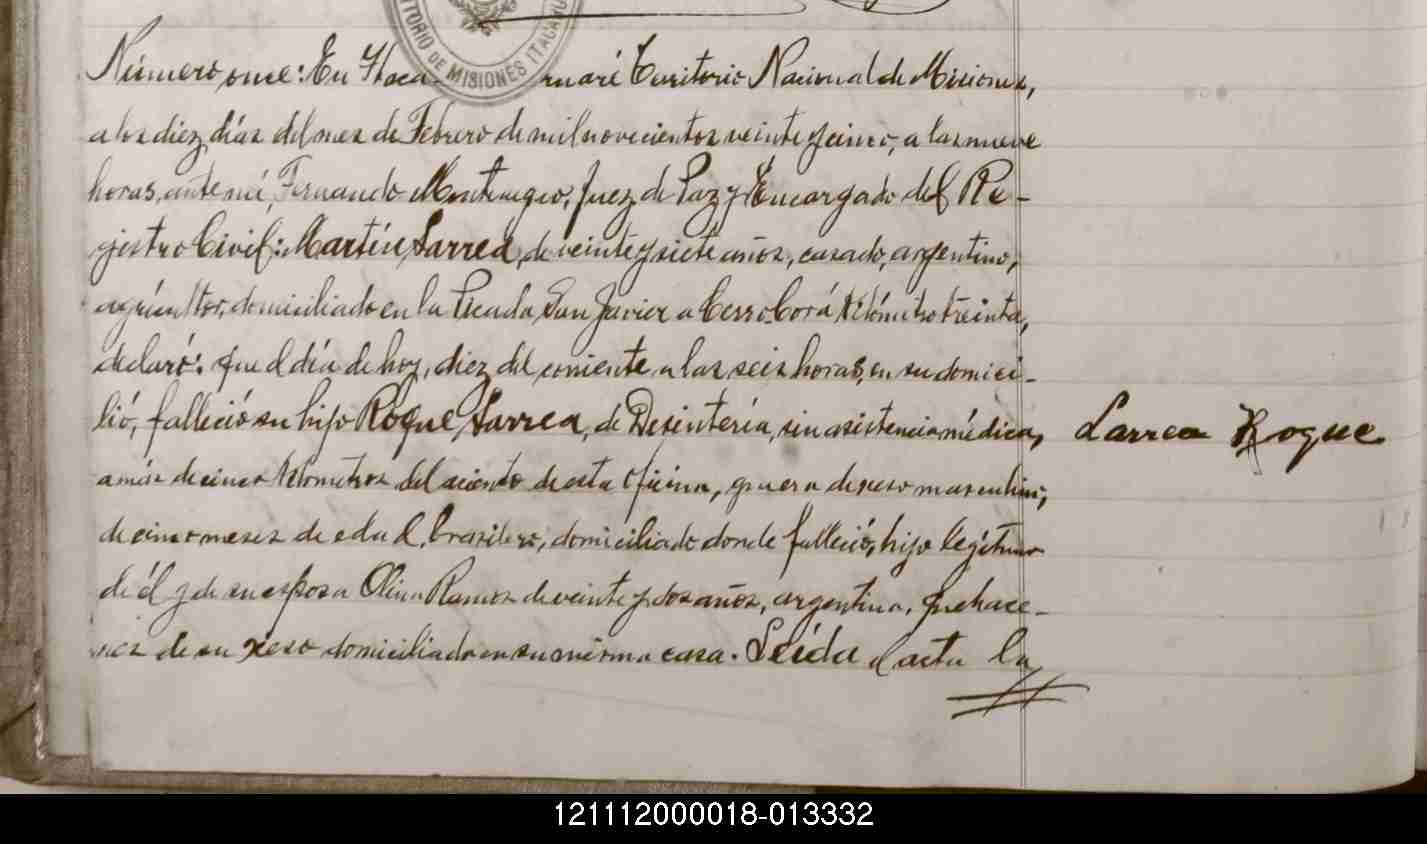 TORIO DE MISIONES ITACARU
Número once: En Itaca ruaré Territorio Nacional de Misiones,
a los diez dias del mes de Febrero de mil novecientos veinte y cinco, a las nueve
horas, ante mí, Fernando Montenegro, Juez de Paz y Encargado del Re-
gistro Civil: Martín Larrea, de veinte y siete años, casado, argentino,
agricultor, domiciliado en la Picada San Javier a Cerro Corá Kilómetro treinta,
declaró: que el día de hoy, diez del corriente a las seis horas, en su domici-
lió, falleció su hijo Roque Larrea, de Desintería, sin asistencia médica,
a más de cinco Kilometros del asiento de esta oficina, que era de sexo masculino,
de cinco meses de edad, brasilero, domiciliado donde falleció, hijo legítimo
de él y de su esposa Olina Ramos de veinte y dos años, argentina, quehace-
res de su sexo domiciliada en su misma casa. Leída el acta la
Larrea Roque
121112000018-013332